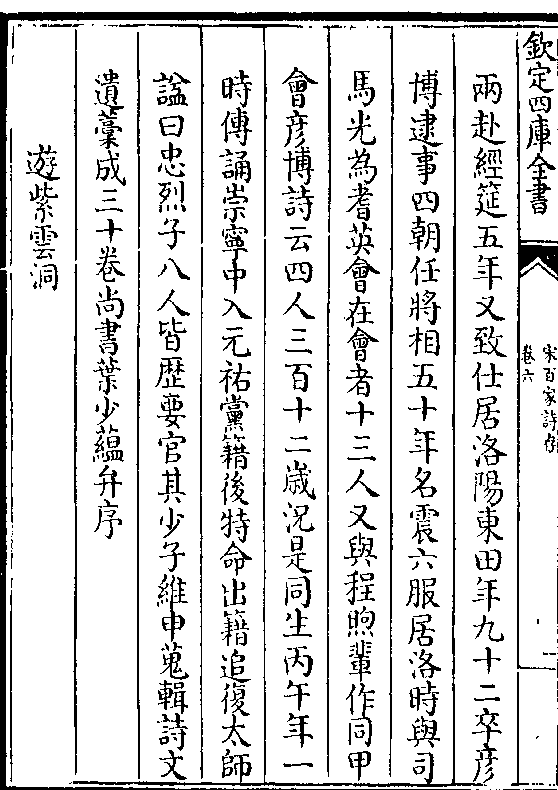 欽定四庫全書
宋百家詩存
卷六
兩赴經筵五年又致仕居洛陽東田年九十二卒彦
博逮事四朝任將相五十年名震六服居洛時與司
馬光為耆英會在會者十三人又與程煦輩作同甲
會彦博詩云四人三百十二歳況是同生丙午年一
時傳誦崇寧中入元祐黨籍後特命出籍追復太師
諡曰忠烈子八人皆歴要官其少子維申蒐輯詩文
遺藁成三十卷尚書葉少蘊弁序
遊紫雲洞